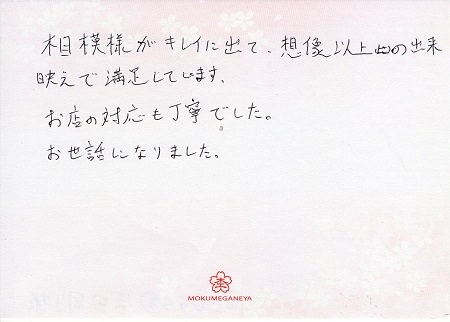 相模様がキレイに出て、想像以上の出来
映えで満足しています。
お店の対応も丁寧でした。
お世話になりました。
MOKUMEGANEYA